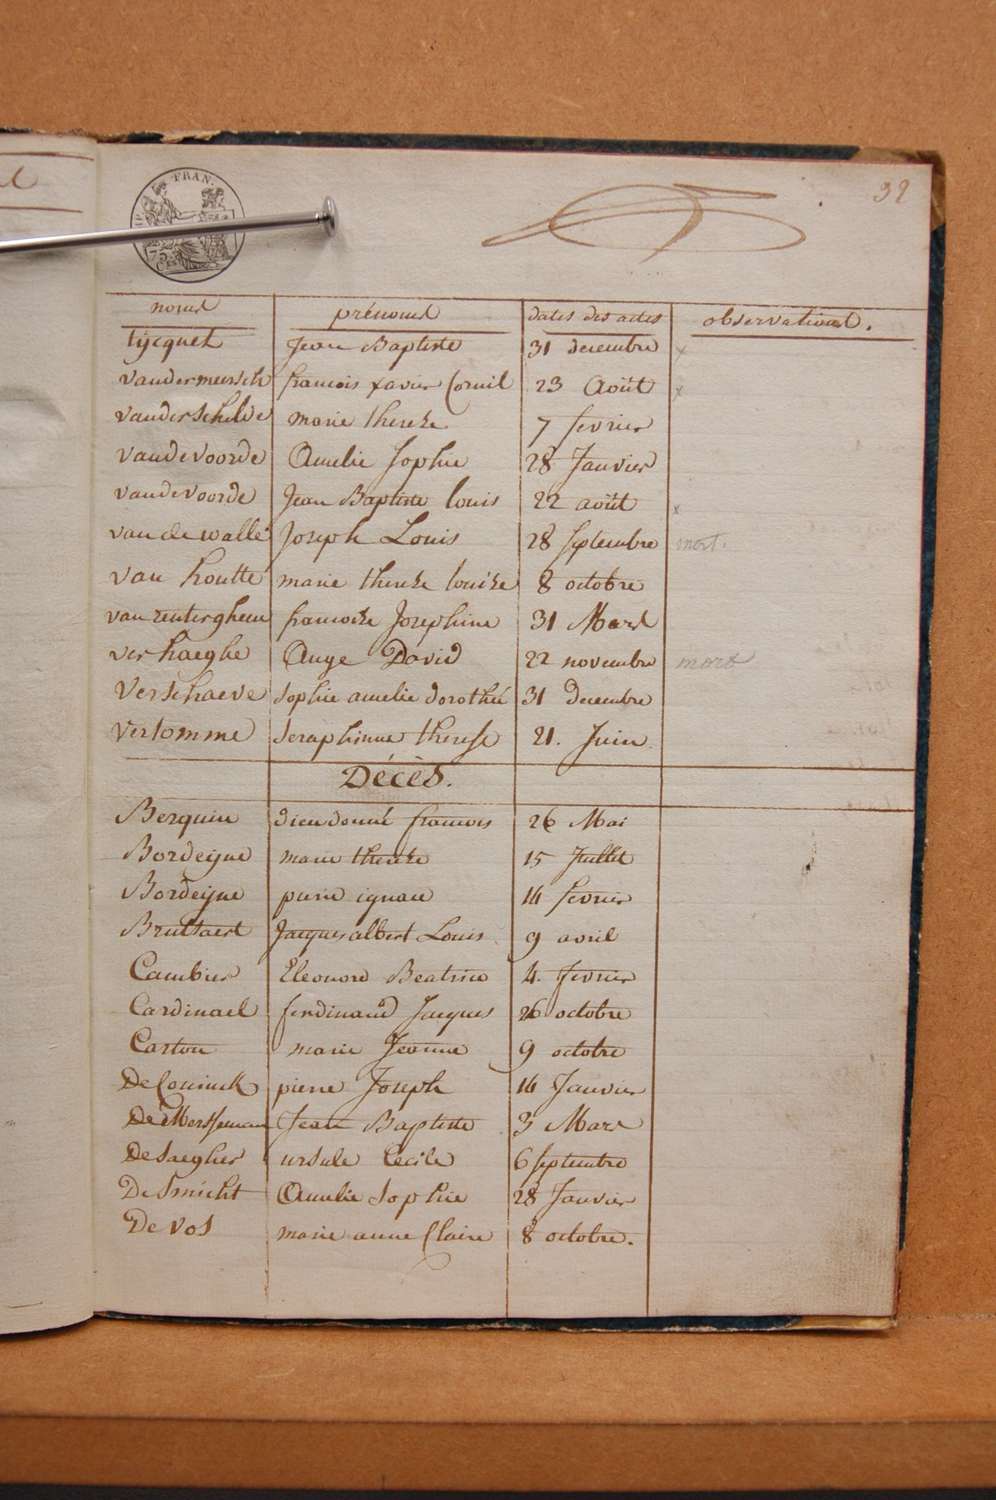 FRAN
75
32
noms prénoms dates des actes observations.
tijcquet Jean Baptiste 31 decembre x
vandermeersch francois xavier Cornil 23 Août x
vanderschelde marie therese 7 fevrier
vandevoorde Amelie Sophie 28 Janvier
vandevoorde Jean Baptiste louis 22 août x
van de walle Joseph Louis 28 septembre mort.
van houtte marie therese louise 8 octobre
van renterghem francoise Josephine 31 Mars
verhaeghe Ange David 22 novembre mort
Verschaeve sophie amelie dorothée 31 Decembre
Verlomme seraphinne therese 21. Juin
Décès.
Berquin dieudonné francois 26 Mai
Bordeijne marie therese 15 Juillet
Bordeijne pierre ignace 14 fevrier
Bruttaert Jacques albert Louis 9 avril
Cambier Eleonore Beatrice 4. fevrier
Cardinael ferdinand Jacques 26 octobre
Caston marie Jeanne 9 octobre
DeConinck pierre Joseph 14 Janvier
DeMersseman Jean Baptiste 3 Mars
DeSaegher ursule Cecile 6 septembre
DeSmicht Amelie Sophie 28 Janvier
DeVos marie anne Claire 8 octobre.